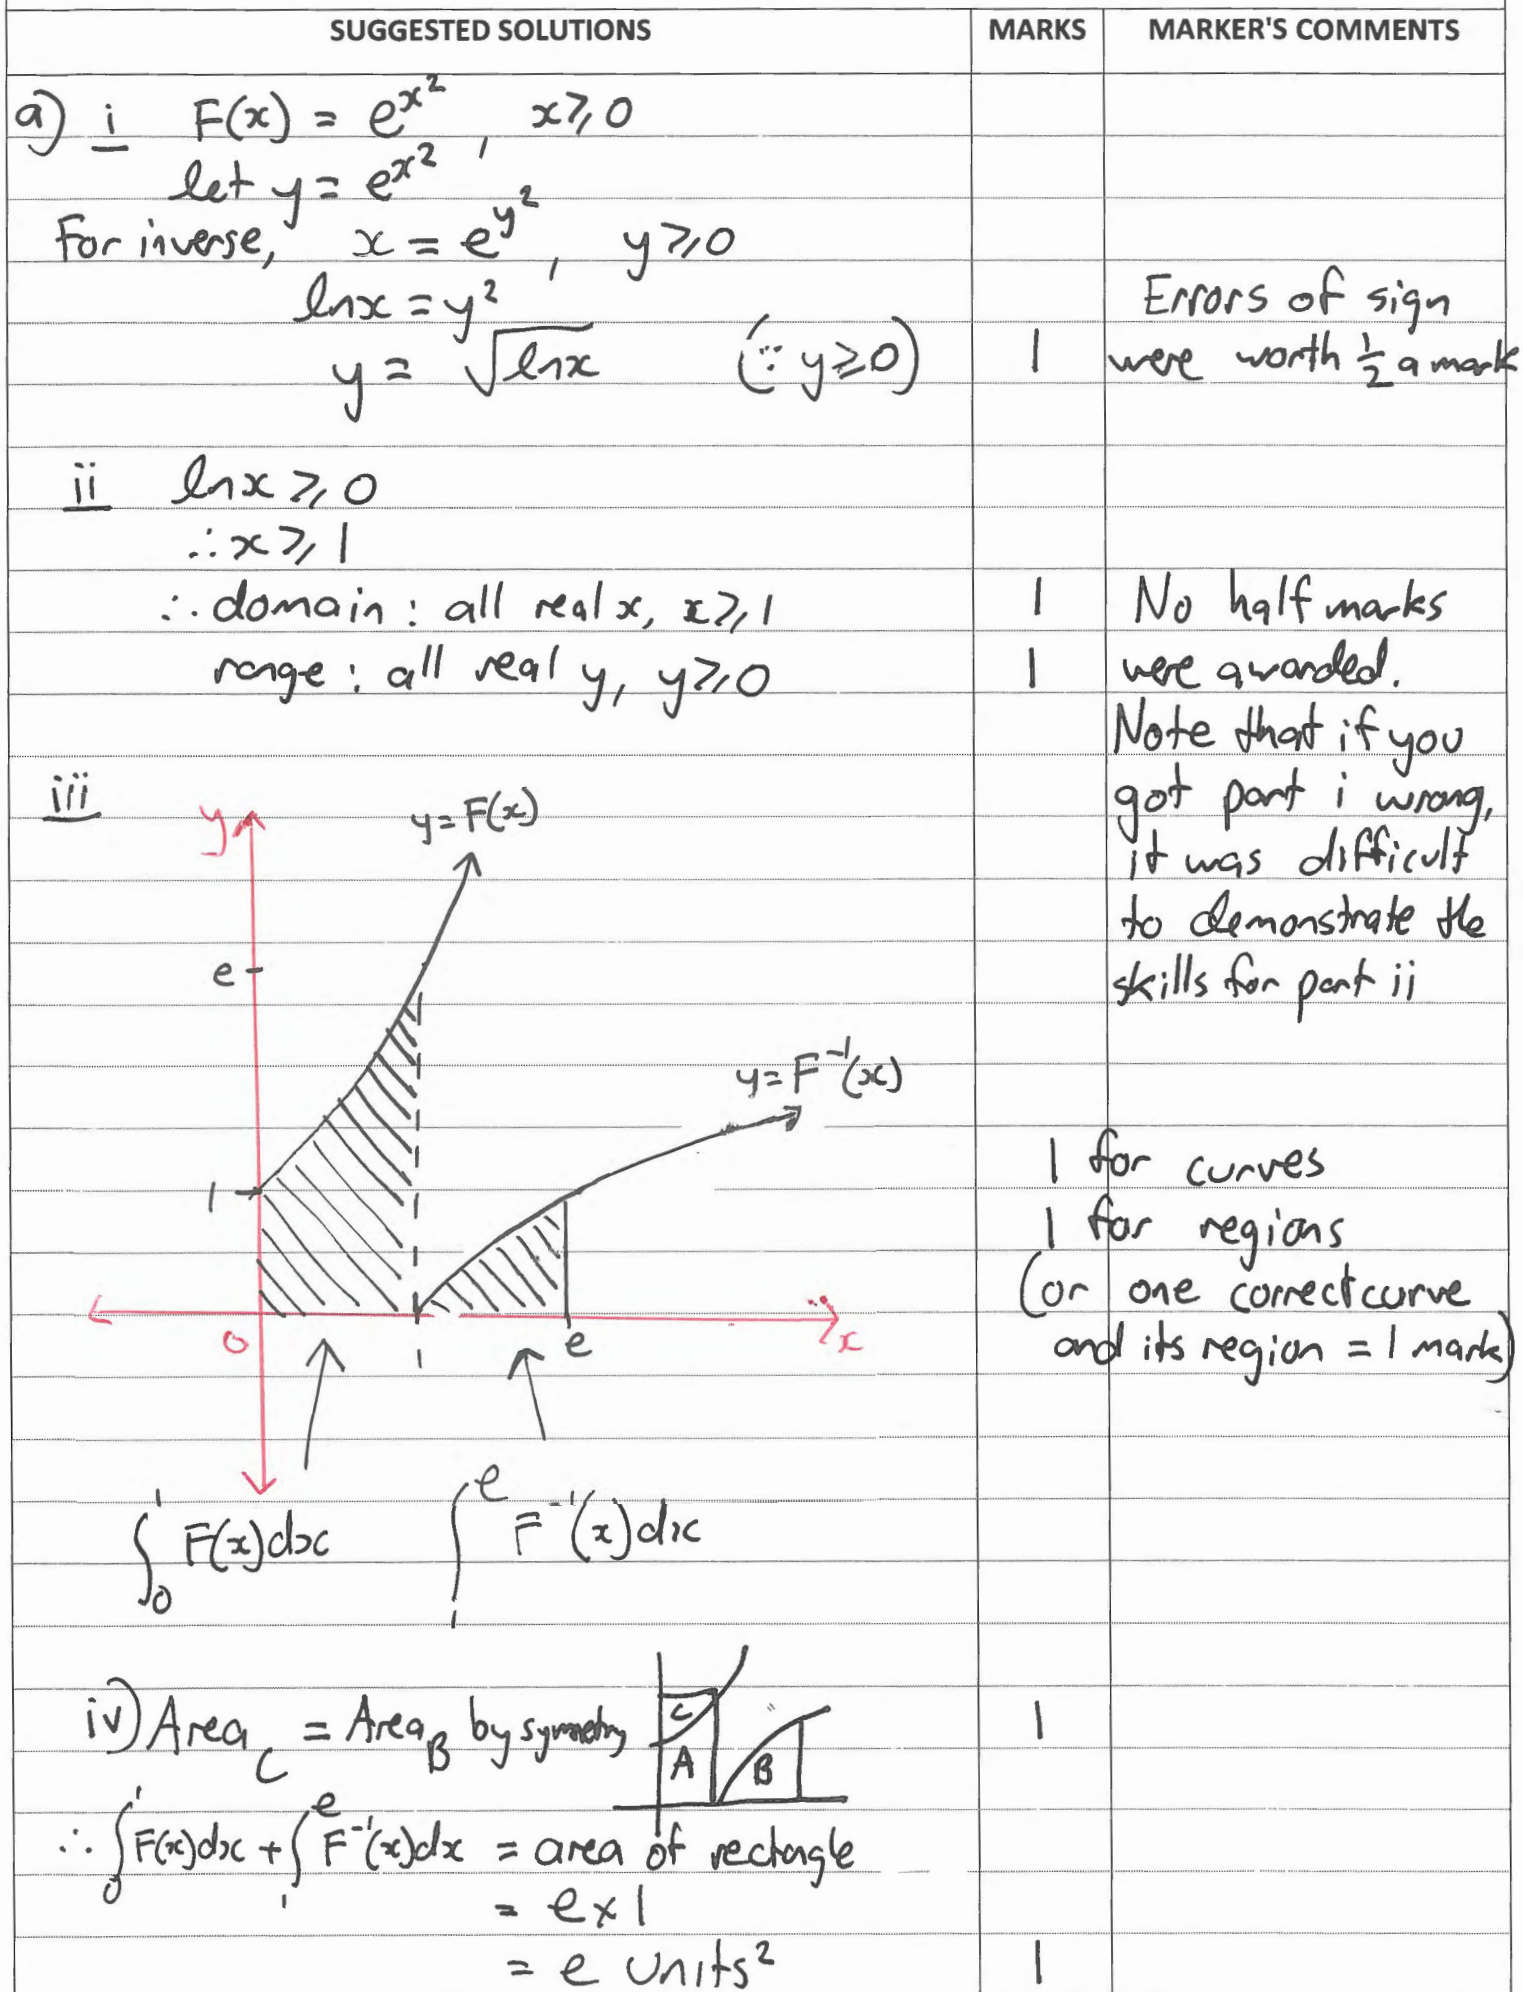 SUGGESTED SOLUTIONS MARKS MARKER'S COMMENTS
a) i F(x) = e^{x^2}, x ⩾ 0
let y = e^{x^2}
For inverse, x = e^{y^2}, y ⩾ 0
ln x = y^2
y = √(ln x) (∵ y ⩾ 0) 1
Errors of sign
were worth 1/2 a mark
ii ln x ⩾ 0
∴ x ⩾ 1
∴ domain : all real x, x ⩾ 1 1
range : all real y, y ⩾ 0 1
No half marks
were awarded.
Note that if you
got part i wrong,
it was difficult
to demonstrate the
skills for part ii
iii
y
y = F(x)
e
y = F^{-1}(x)
1
0 1 e x
1 for curves
1 for regions
(or one correct curve
and its region = 1 mark)
∫_0^1 F(x) dx ∫_1^e F^{-1}(x) dx
iv) Area_C = Area_B by symmetry 1
C
A B
∴ ∫_0^1 F(x) dx + ∫_1^e F^{-1}(x) dx = area of rectangle
= e × 1
= e units^2 1